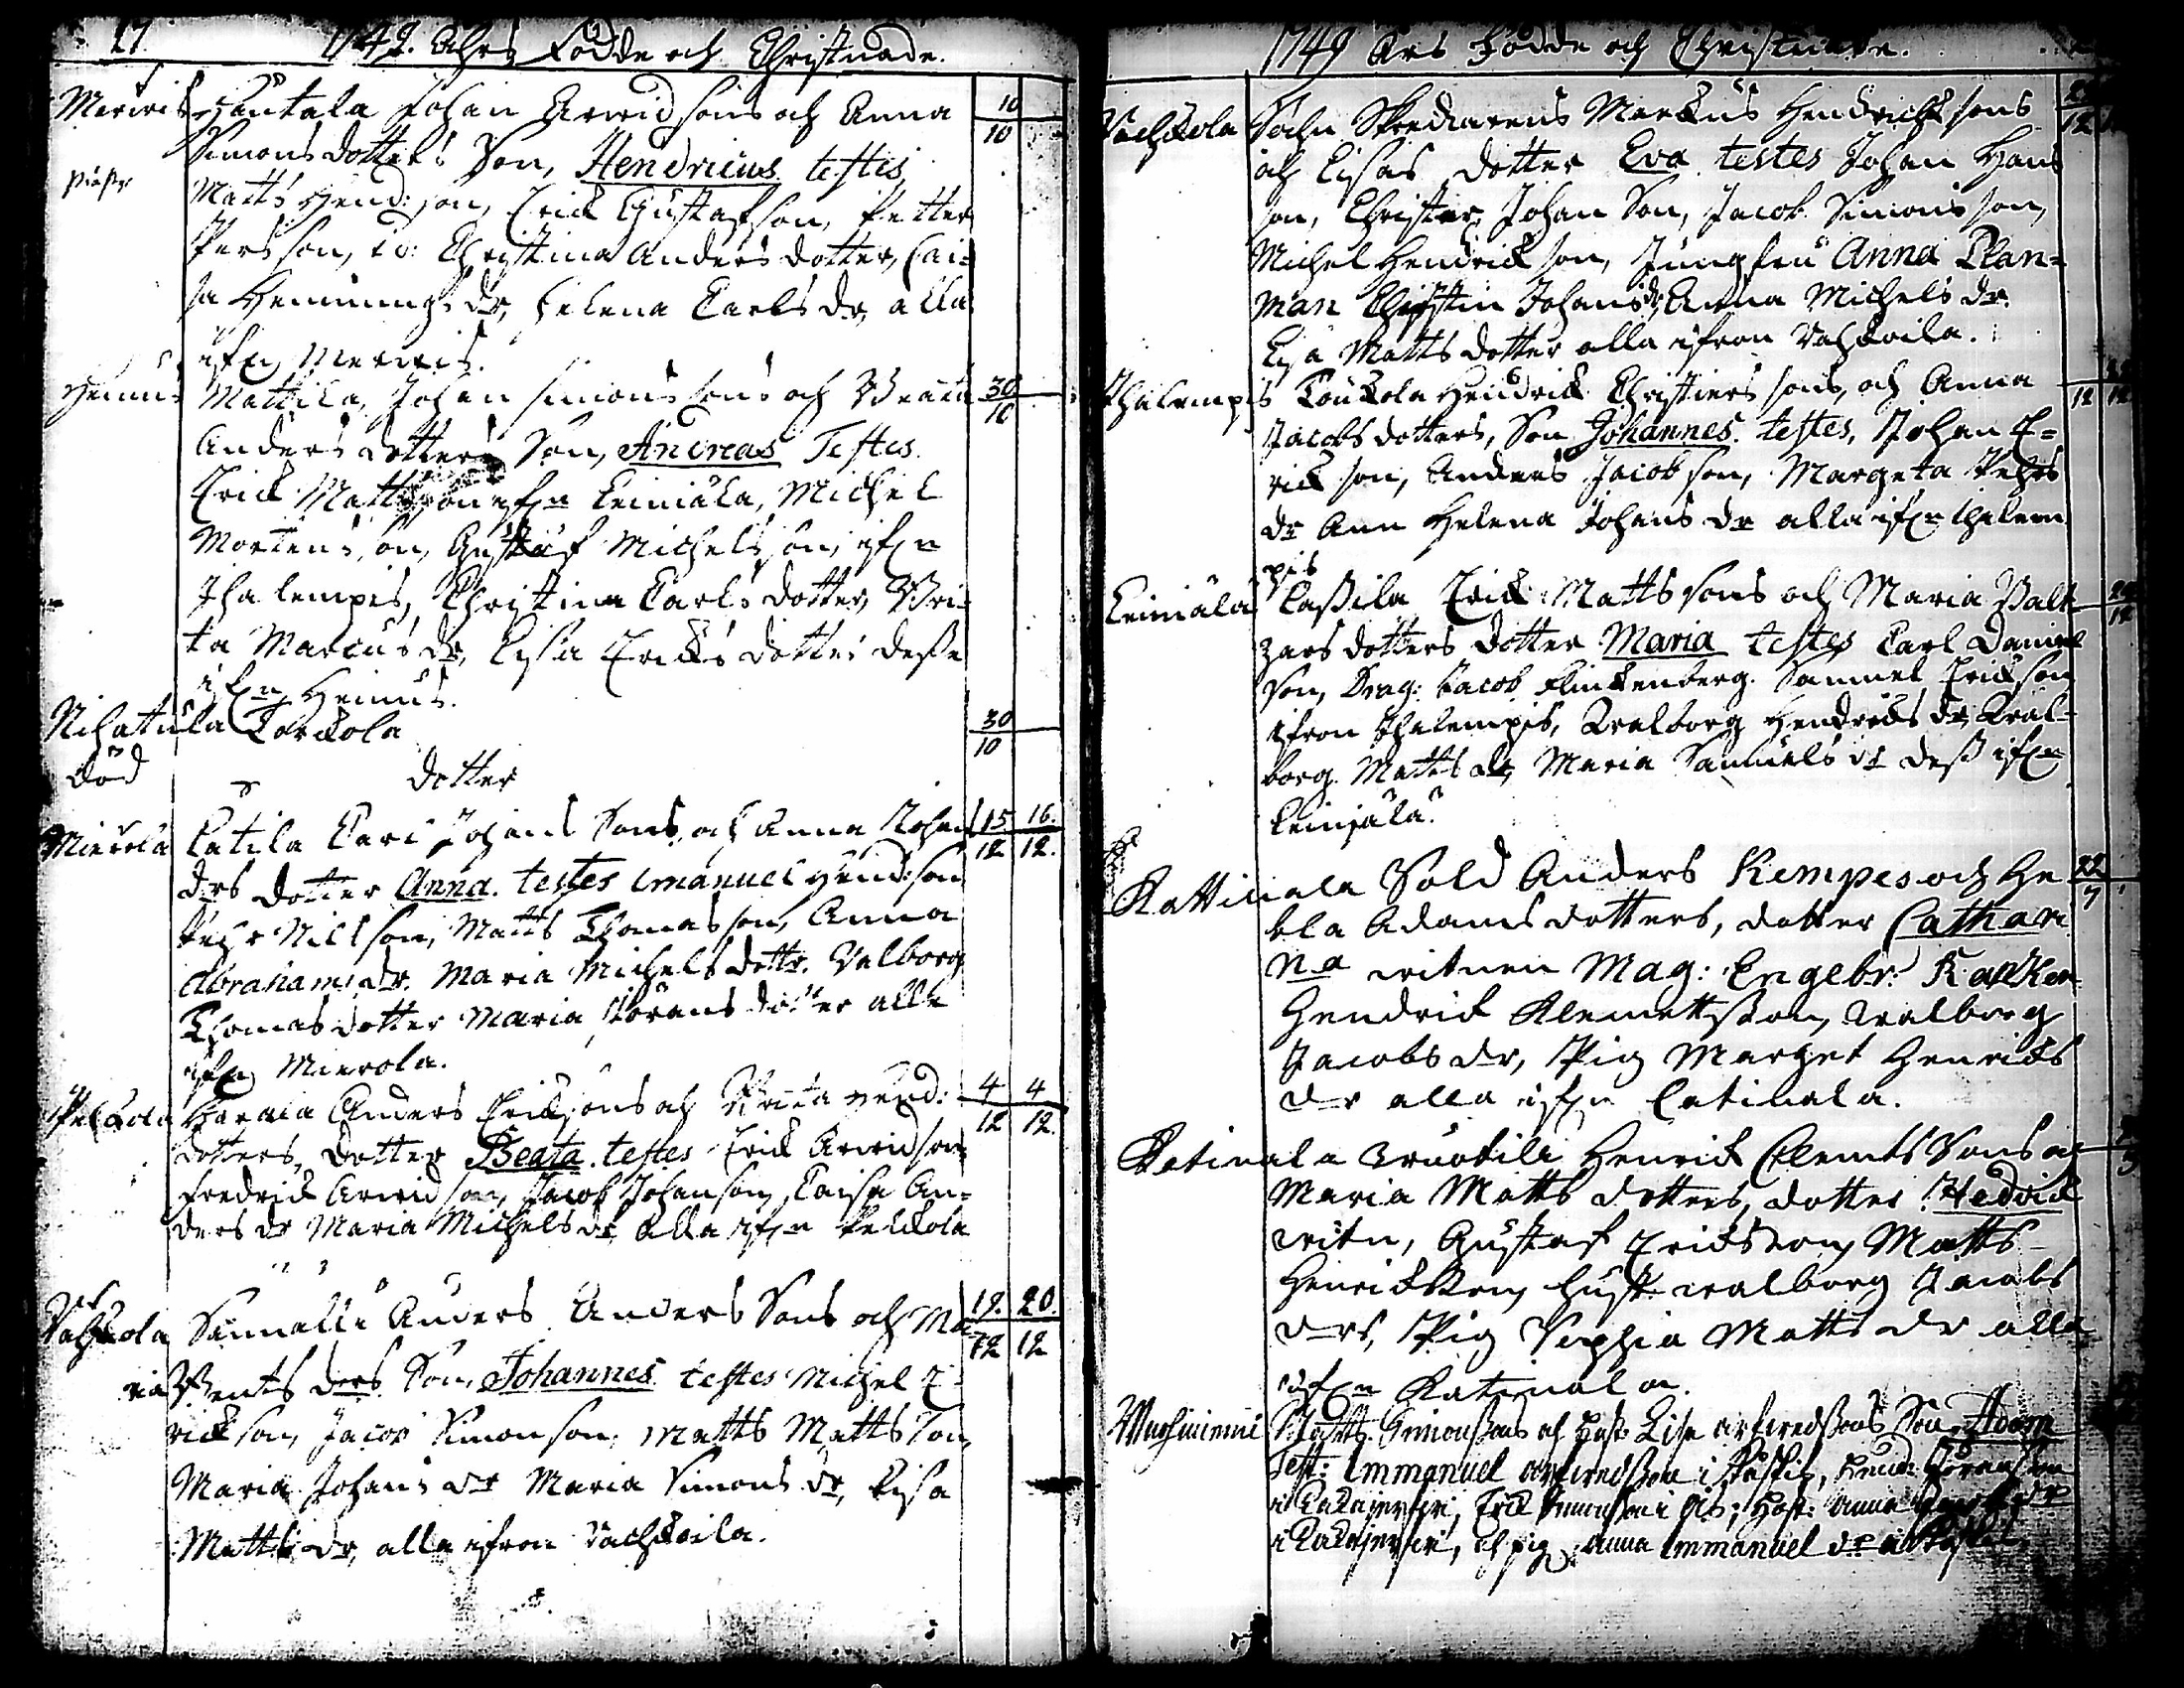 27
1749. Ahrs Födde och Christnade.
Merwis Hantala Johan Arwidsons och Anna 10 10
Simons dotters Son, Hendricus testis
Matts Hend: son, Erick Gustafson, Petter
Pers son, Christina Anders dotter, Cai=
sa Hennings dr, Helena Carls dr, alla
ifrn Merwis.
Heinus Mattila, Johan Simons sons och Beata 30 10
Anders dotters Son, Andreas Testes.
Erick Mattsson ifrn Leiniala, Michel
Mortens son, Gustaf Michelsson, ifrn
Ihalempis, Christina Carls dotter, Bri=
ta Marcus dr, Lisa Ericks dotter desse
ifrn Heinus.
Nihatula Torckola 30 10
död dotter
Mierola Catila Carl Johans Sons och Anna Johans 15 12 16. 12.
drs dotter Anna. testes Emanuel Hend:son
Pehr Nilsson, Matts Thomas son, Anna
Abrahams dr. Maria Michels dottr. Valborg
Thomas dotter Maria Jörans dotter alla
ifrn Mierola.
Pelckola Harala Anders Ericksons och Beata Hend: 4 12 4 12.
dotters, dotter Beata. testes Erick Arwidson
Fredrick Arwidson, Jacob Johanson, Caisa An=
ders dr Maria Michels dr, alla ifrn Pelckola
Vachkola Sinnalle Anders Anders Sons och Ma= 19. 12 20. 12
ria Bents drs Son, Johannes testes Michel E=
rickson, Jacob Simonson, Matts Mattsson,
Maria Johans dr Maria Simons dr, Lisa
Matts dr, alla ifron Vachkoila.
1749 Ars Födde och Christnade.
Vachkola Sochn Skredarens Markus Hendrickssons 12
och Lisas dotter Eva testes Johan Hans
son, Christer Johan Son, Jacob Simonsson,
Michel Hendrickson, Jungfru Anna Plan=
man Christin Johans dr, Anna Michels dr.
Lisa Matts dotter alla ifron Vachkoila.
Ihalempis Touckola Hendrick Christiers sons, och Anna 12 12
Jacobs dotters, Son Johannes. testes, Johan E=
rick son, Anders Jacobson, Margeta Pehrs
dr Ann Helena Johans dr alla ifrn Ihalem
pis
Leiniala Cassila Erick Matts sons och Maria Balt 12
zars dotters dotter Maria testes Carl Daniel
Son, Drag: Jacob Flinckenberg. Samuel Erickson
ifron Ihalempis, Walborg Hendricks dr, Wal=
borg Matts dr, Maria Samuels dr dess ifrn
Leinjala.
Kattinala Sold Anders Kempes och He 22 7
bla Adams dotters, dotter Cathari
na witnen Mag: Engelbr:
Hendrick Klemettsson, Walborg
Jacobs dr, Pig Marget Henricks
dr alla ifrn Catinala.
Katinala Henrick Clemets Sons oc
Maria Matts dotters, dotter Hedvid
witn, Gustaf Ericksson, Matts
Henricksson, hust. Walborg Jacobs
drs, Pig Sophia Matts dr alla
ifrn Katinala.
Matts Simonssons och Hust. Lisa arfwedssons Son Adam
Test: Emmanuel arfwedsson i
Erick Simonsson i Hust. Anna
och pig. Anna Emmanuel dr